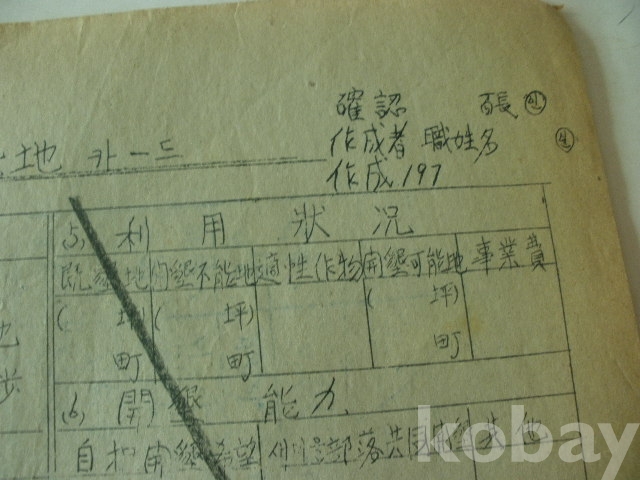 確認 長 인
作成者 職姓名 인
地 카ー드
作成 197
(5) 利用狀況
既墾地 開墾不能地 適性作物 開墾可能地 事業費
( 坪) ( 坪) ( 坪)
町 町 町
(6) 開墾能力
自力開墾希望 새마을部落共同開墾 其他
kobay